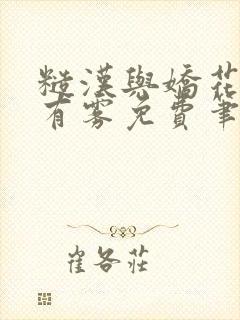 糙漢與嬌花
有雾免費筆
崔各莊